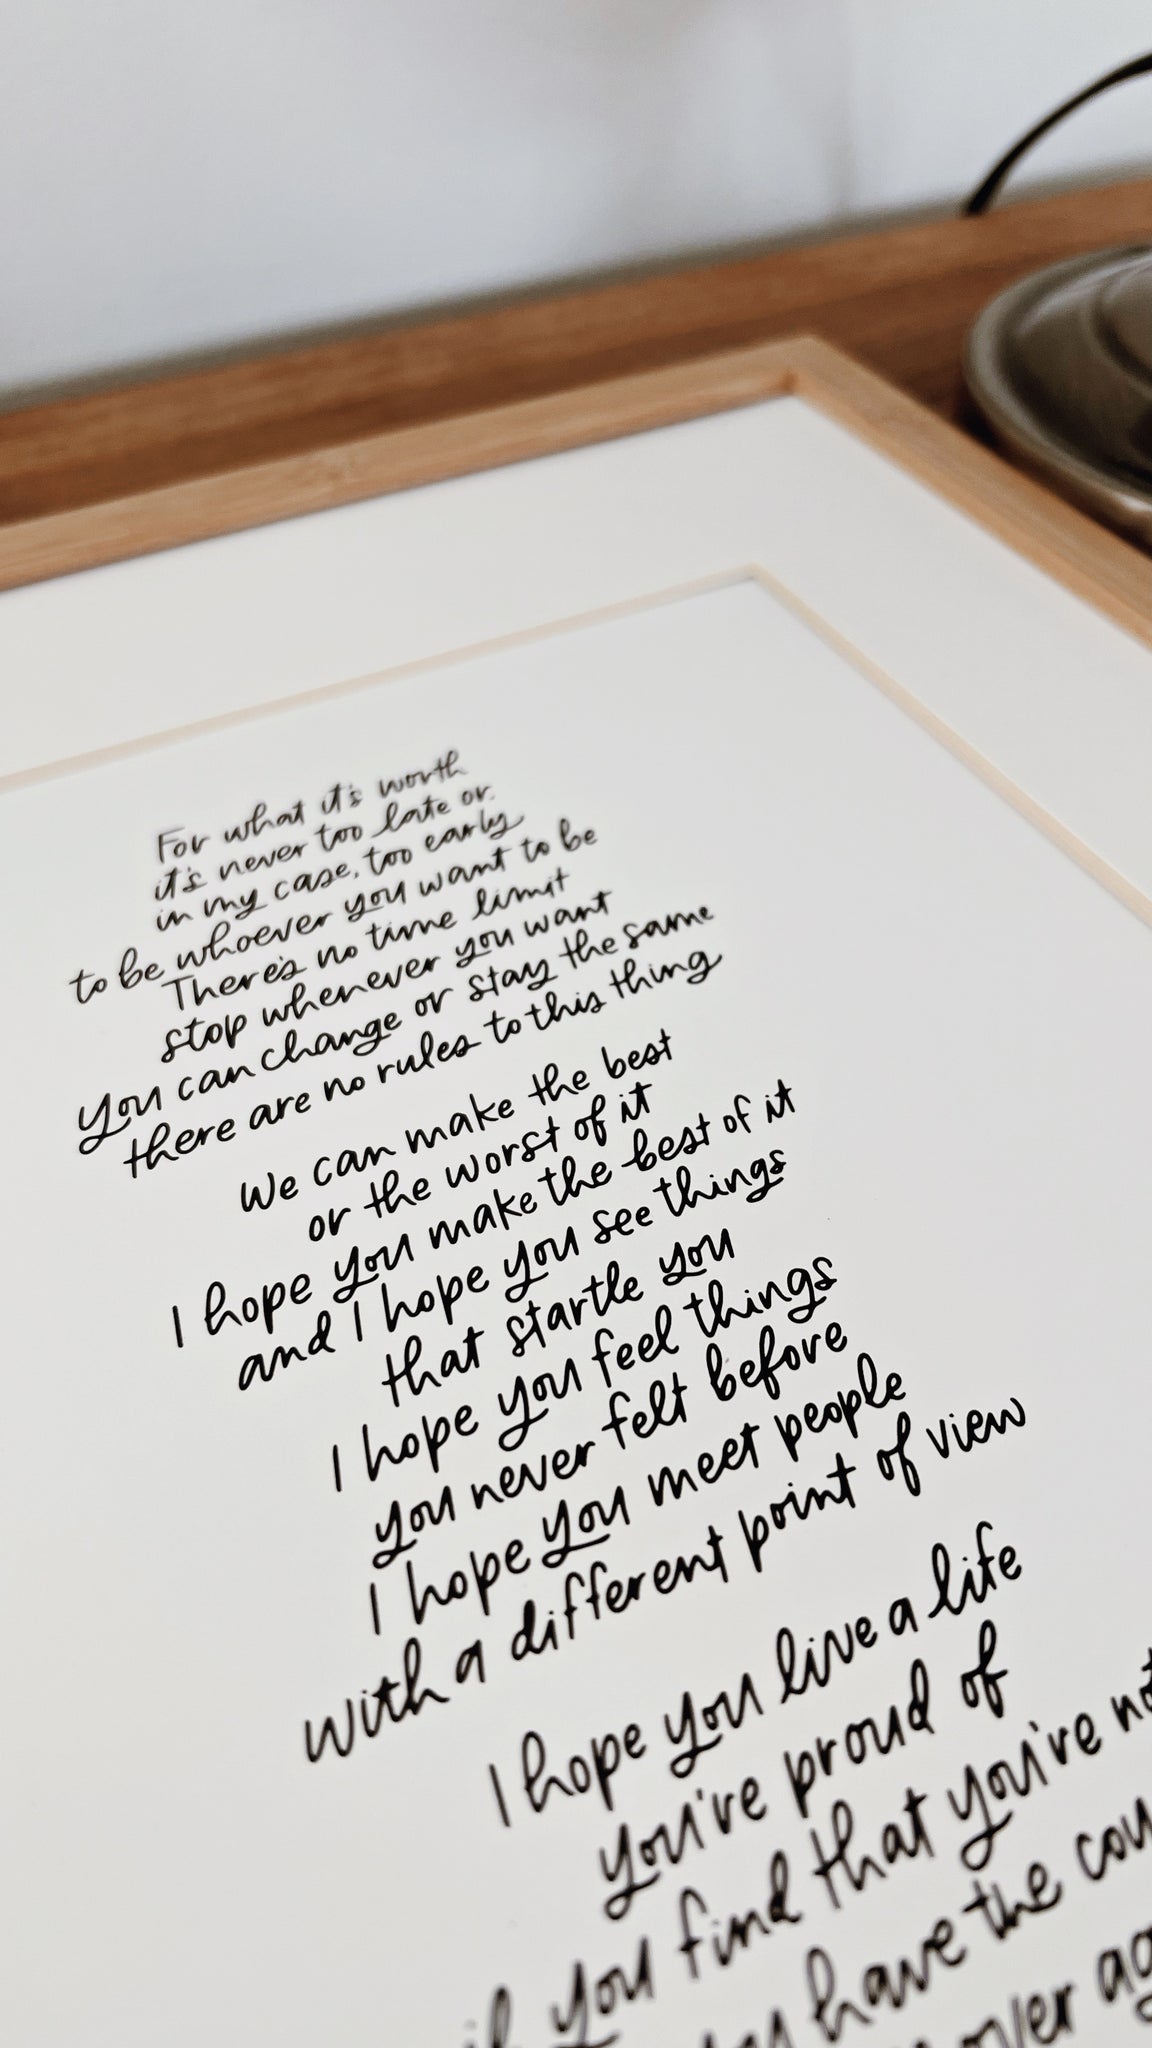 For what it's worth
it's never too late or
in my case, too early
to be whoever you want to be
There's no time limit
stop whenever you want
You can change or stay the same
there are no rules to this thing
We can make the best
or the worst of it
I hope you make the best of it
and I hope you see things
that startle you
I hope you feel things
you never felt before
I hope you meet people
with a different point of view
I hope you live a life
you're proud of
if you find that you're not
have the
over